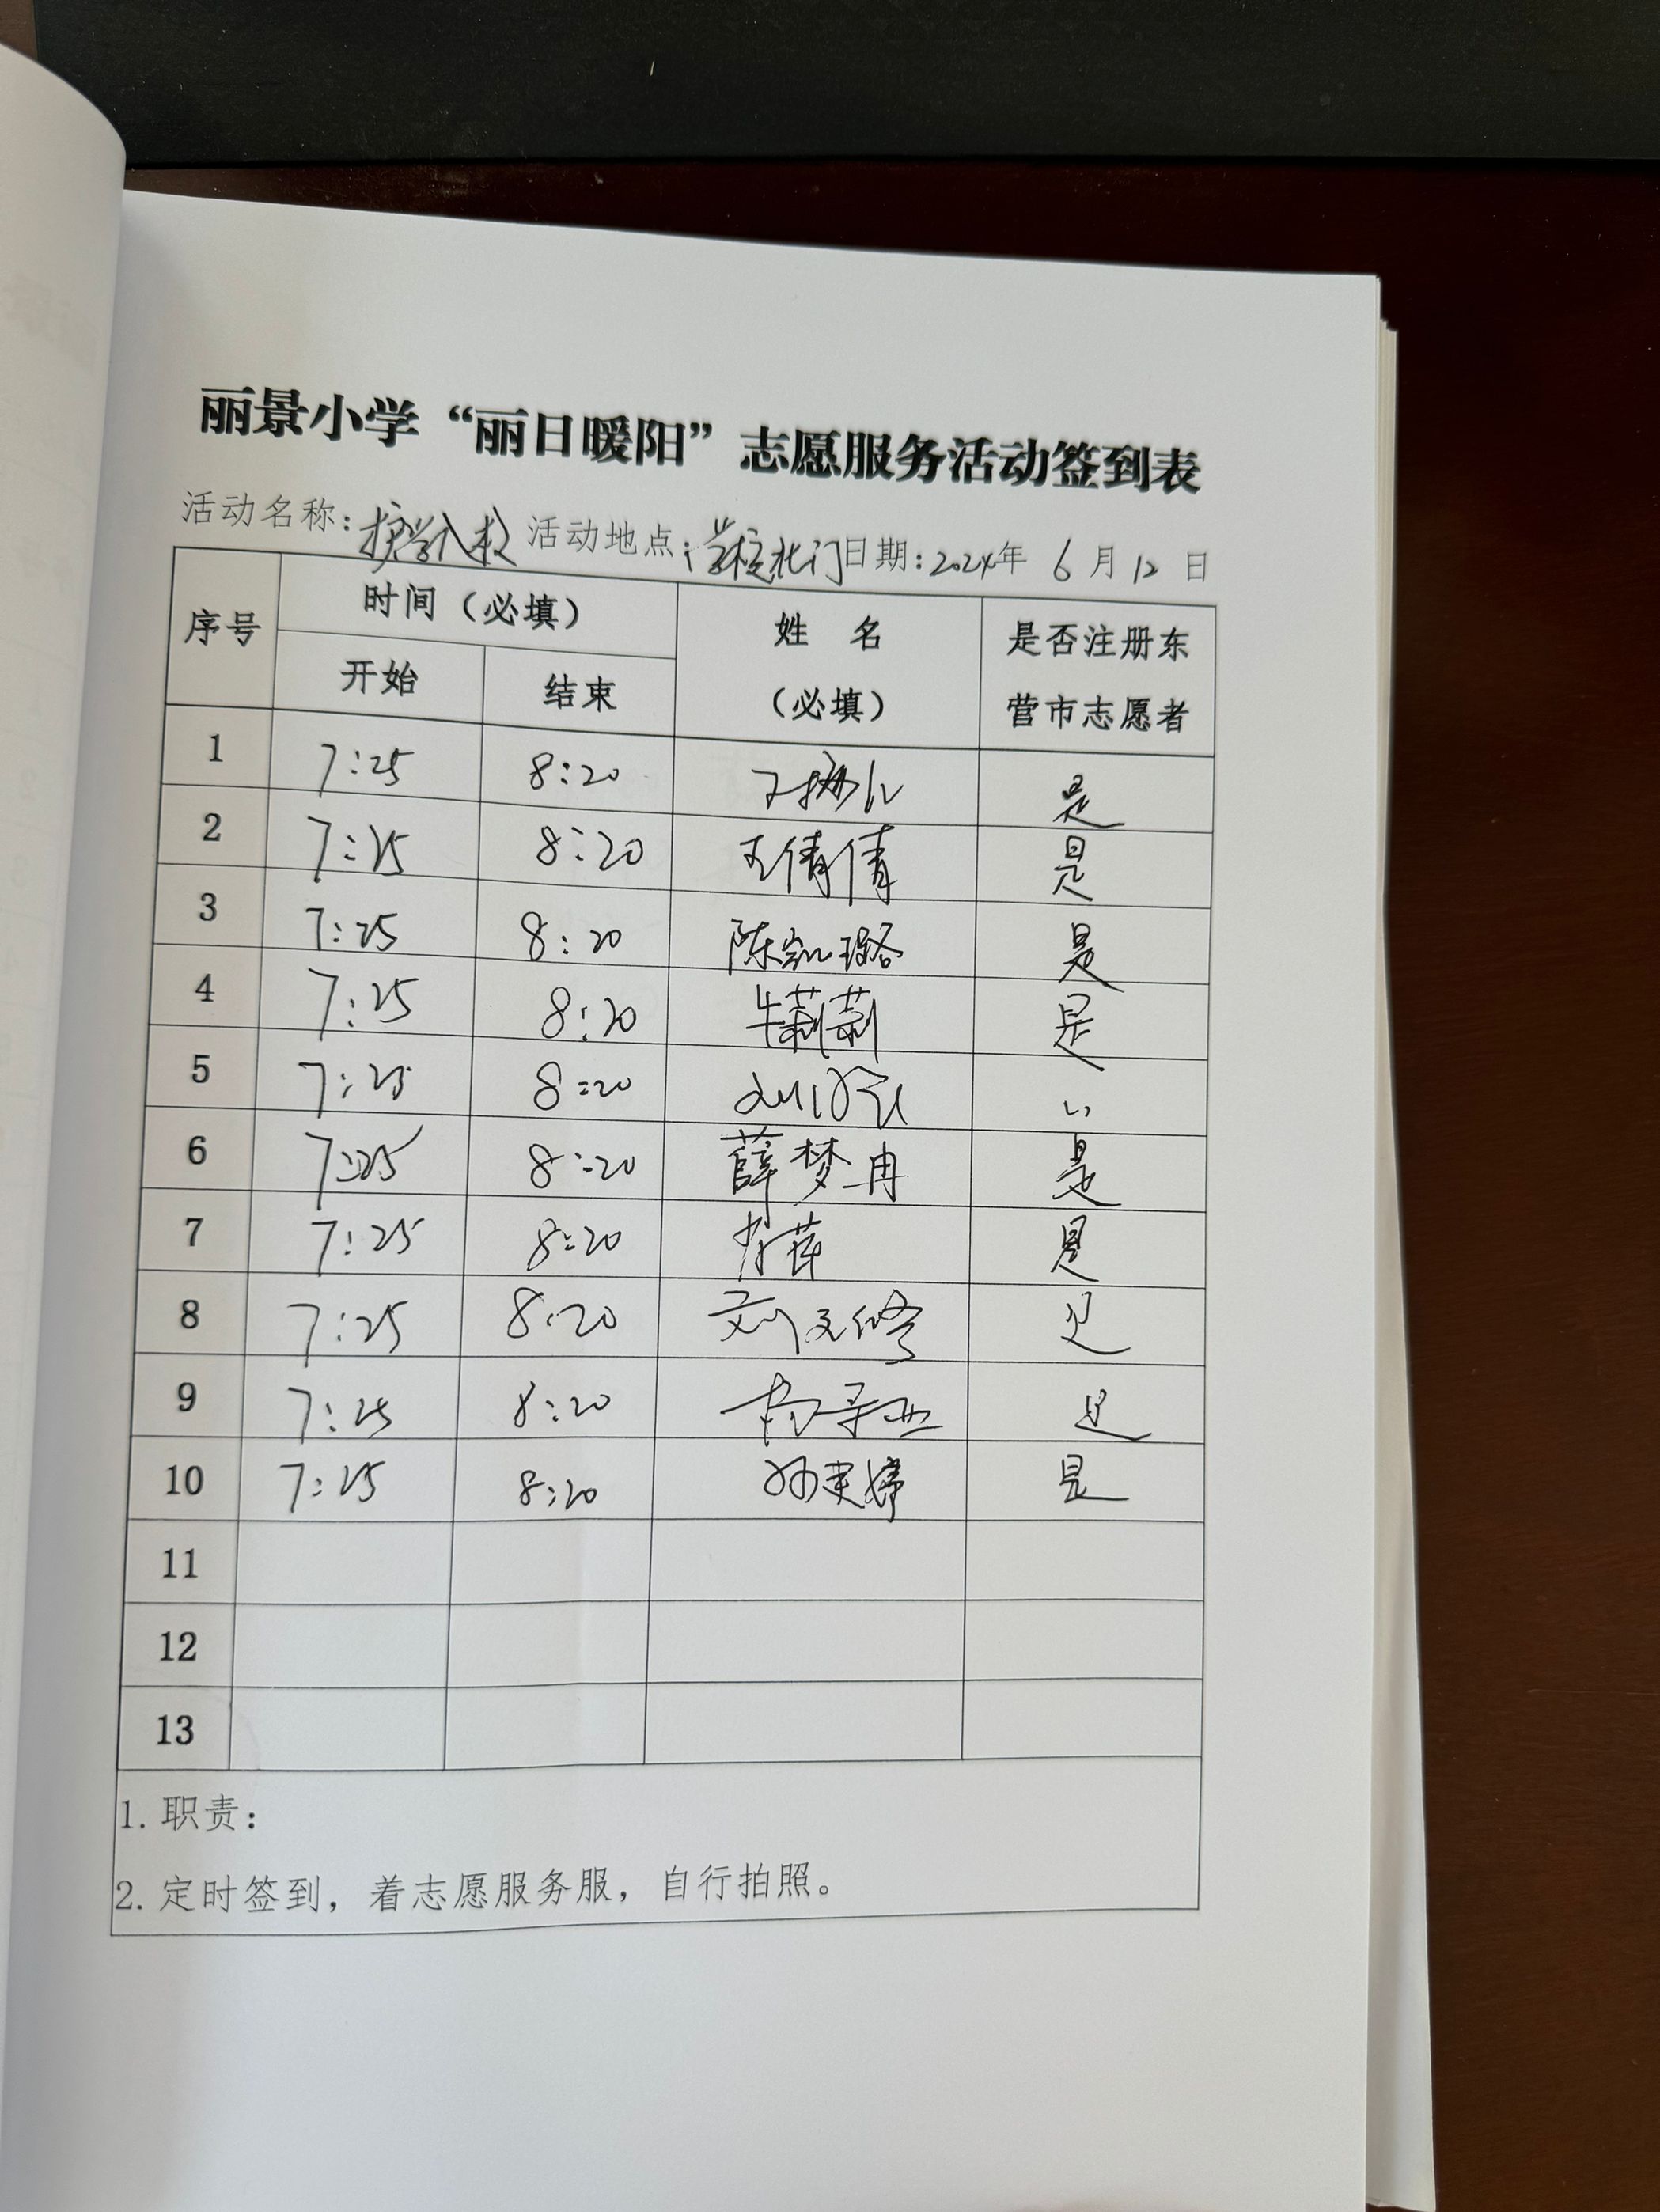 丽景小学“丽日暖阳”志愿服务活动签到表
活动名称：护学入校 活动地点：学校北门 日期：2024年 6月12日
序号 时间（必填） 姓 名（必填） 是否注册东营市志愿者
开始 结束
1 7:25 8:20 是
2 7:25 8:20 王倩倩 是
3 7:25 8:20 陈凯璐 是
4 7:25 8:20 牛莉莉 是
5 7:25 8:20 〃
6 7:25 8:20 薛梦冉 是
7 7:25 8:20 是
8 7:25 8:20 刘文修 是
9 7:25 8:20 是
10 7:25 8:20 是
11
12
13
1. 职责：
2. 定时签到，着志愿服务服，自行拍照。